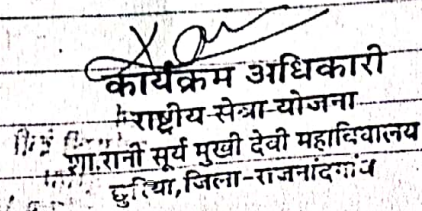 कार्यक्रम अधिकारी
राष्ट्रीय-सेवा-योजना
शा.रानी सूर्य मुखी देवी महाविद्यालय
छुरिया, जिला-राजनांदगांव